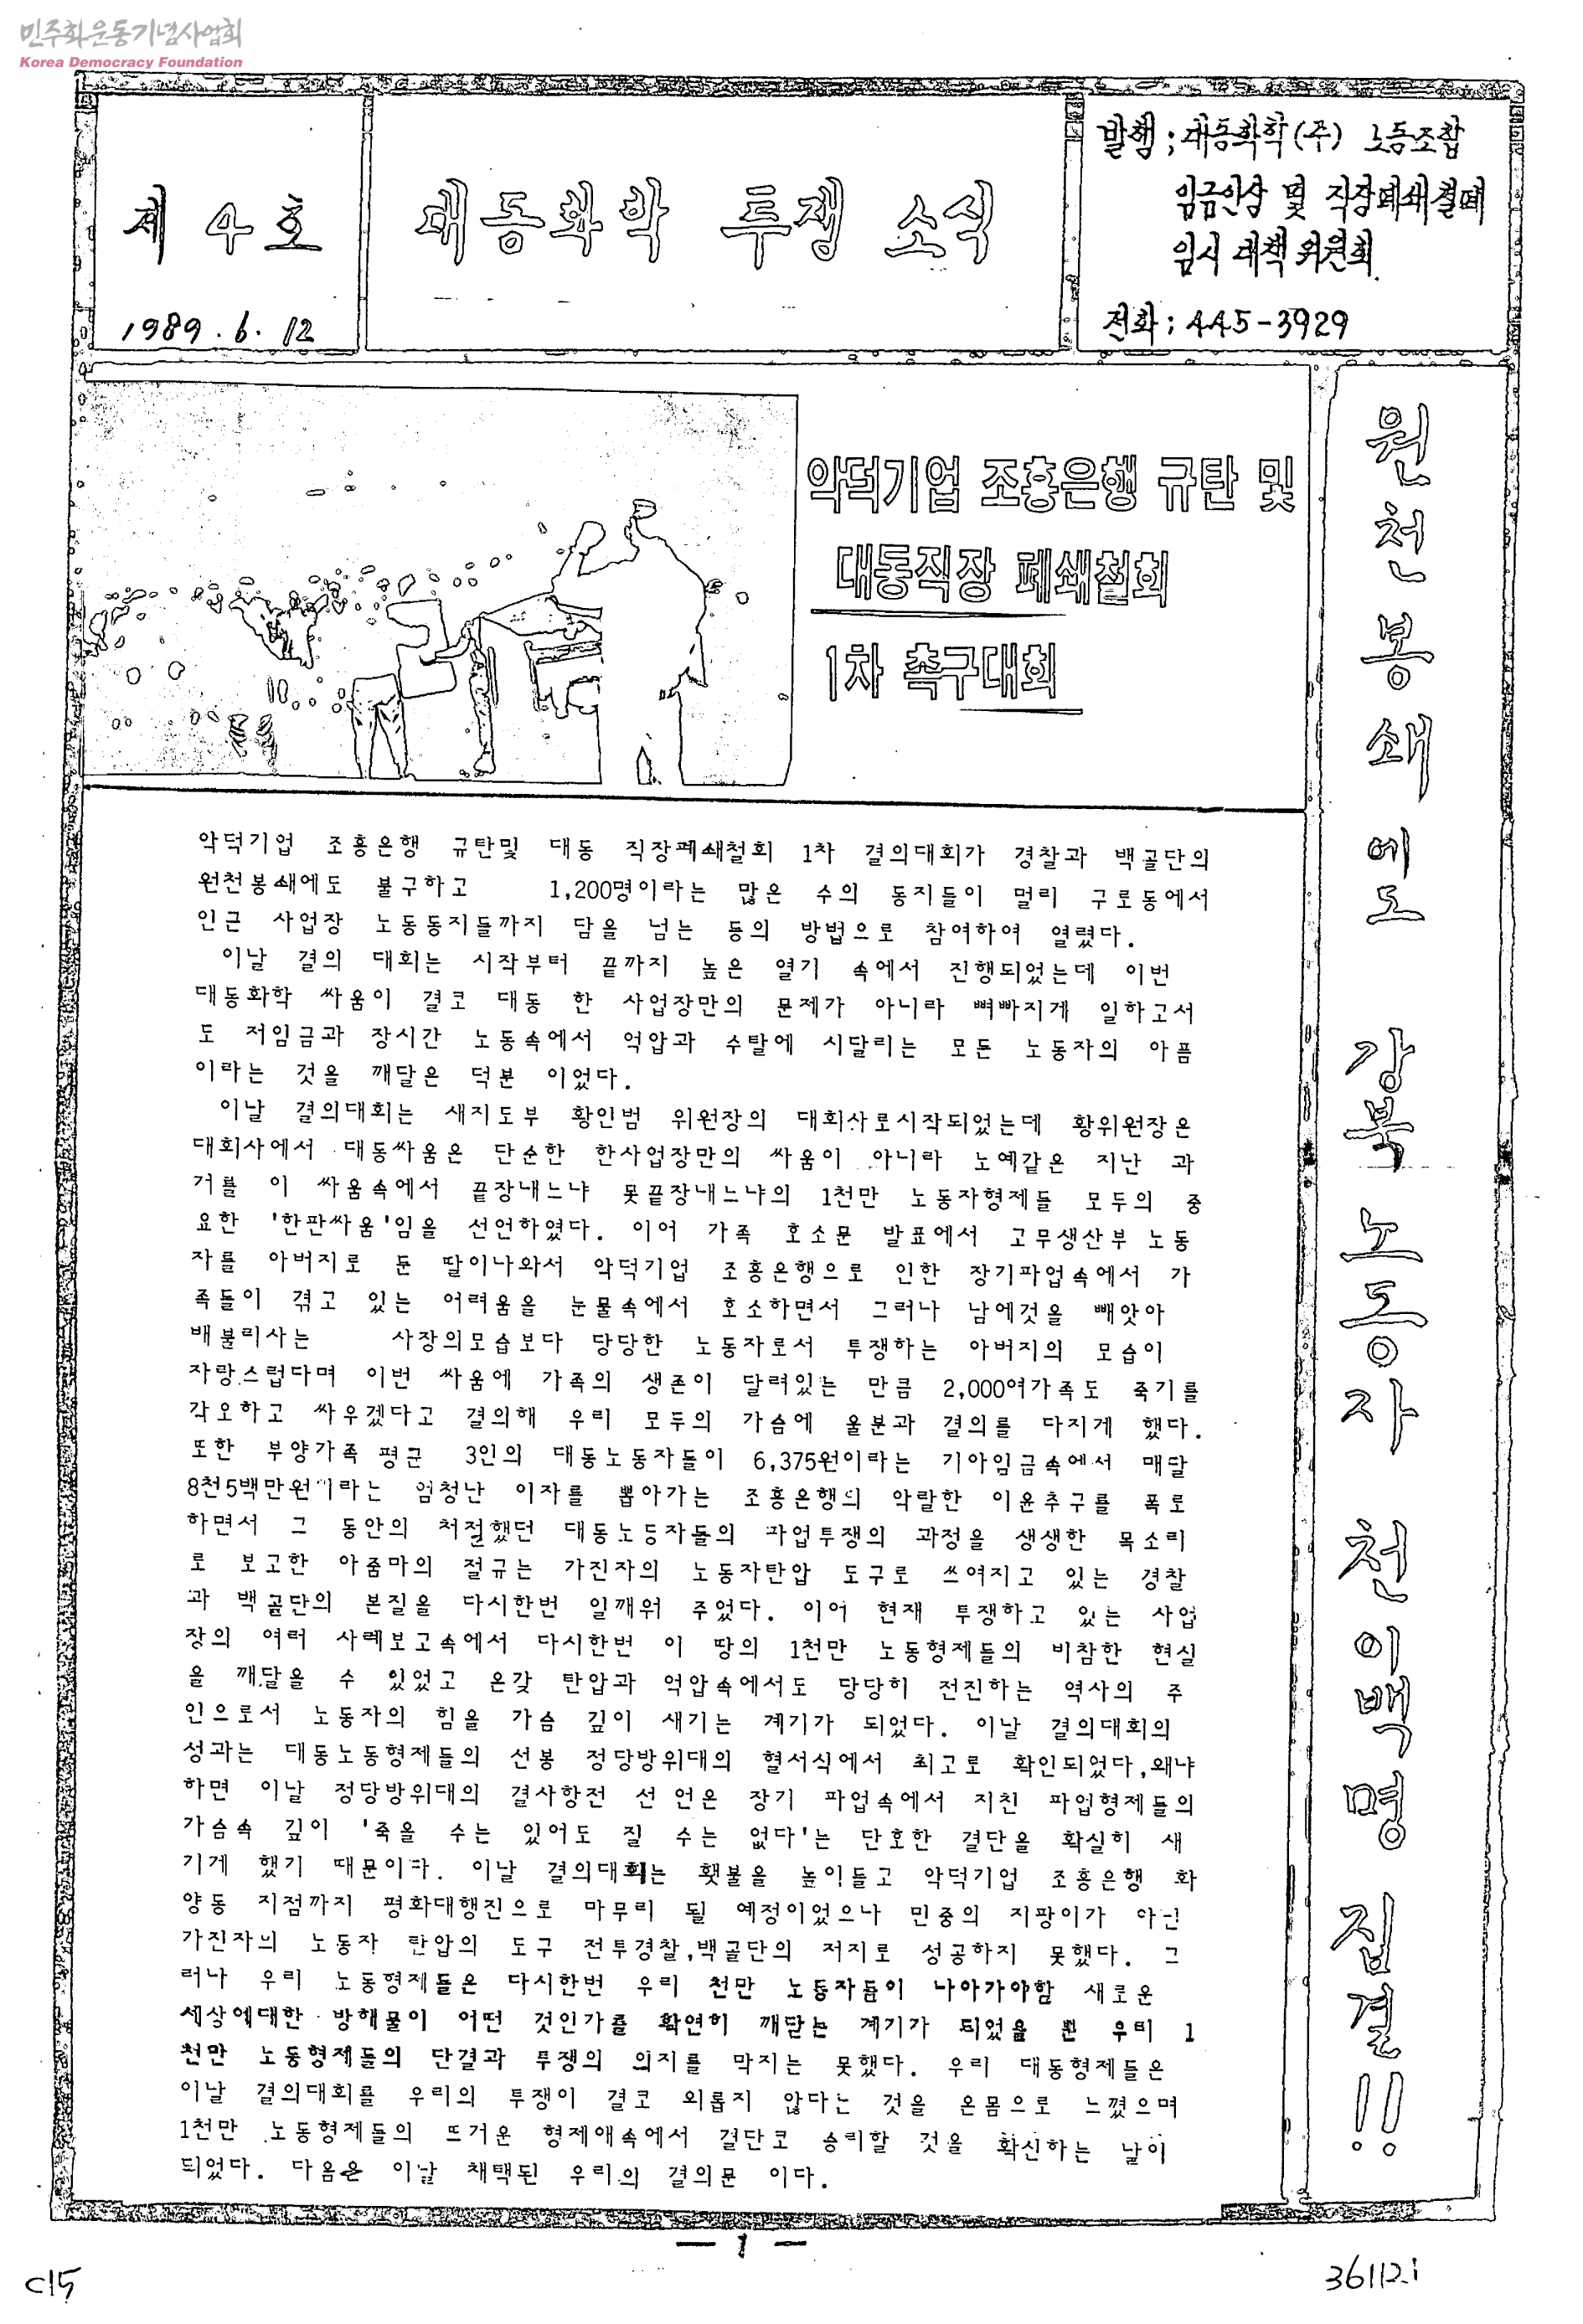 민주화운동기념사업회
Korea Democracy Foundation
제 4 호
1989. 6. 12
대동화학 투쟁 소식
발행 ; 대동화학(주) 노동조합
임금인상 및 직장폐쇄철폐
임시 대책 위원회
전화 ; 445-3929
악덕기업 조흥은행 규탄 및
대동직장 폐쇄철회
1차 촉구대회
원천봉쇄에도 강북 노동자 천이백명 집결!!
악덕기업 조흥은행 규탄및 대동 직장폐쇄철회 1차 결의대회가 경찰과 백골단의
원천봉쇄에도 불구하고 1,200명이라는 많은 수의 동지들이 멀리 구로동에서
인근 사업장 노동동지들까지 담을 넘는 등의 방법으로 참여하여 열렸다.
이날 결의 대회는 시작부터 끝까지 높은 열기 속에서 진행되었는데 이번
대동화학 싸움이 결코 대동 한 사업장만의 문제가 아니라 뼈빠지게 일하고서
도 저임금과 장시간 노동속에서 억압과 수탈에 시달리는 모든 노동자의 아픔
이라는 것을 깨달은 덕분 이었다.
이날 결의대회는 새지도부 황인범 위원장의 대회사로시작되었는데 황위원장은
대회사에서 대동싸움은 단순한 한사업장만의 싸움이 아니라 노예같은 지난 과
거를 이 싸움속에서 끝장내느냐 못끝장내느냐의 1천만 노동자형제들 모두의 중
요한 '한판싸움'임을 선언하였다. 이어 가족 호소문 발표에서 고무생산부 노동
자를 아버지로 둔 딸이나와서 악덕기업 조흥은행으로 인한 장기파업속에서 가
족들이 겪고 있는 어려움을 눈물속에서 호소하면서 그러나 남에것을 빼앗아
배불리사는 사장의모습보다 당당한 노동자로서 투쟁하는 아버지의 모습이
자랑스럽다며 이번 싸움에 가족의 생존이 달려있는 만큼 2,000여가족도 죽기를
각오하고 싸우겠다고 결의해 우리 모두의 가슴에 울분과 결의를 다지게 했다.
또한 부양가족 평균 3인의 대동노동자들이 6,375원이라는 기아임금속에서 매달
8천5백만원이라는 엄청난 이자를 뽑아가는 조흥은행의 악랄한 이윤추구를 폭로
하면서 그 동안의 처절했던 대동노동자들의 파업투쟁의 과정을 생생한 목소리
로 보고한 아줌마의 절규는 가진자의 노동자탄압 도구로 쓰여지고 있는 경찰
과 백골단의 본질을 다시한번 일깨워 주었다. 이어 현재 투쟁하고 있는 사업
장의 여러 사례보고속에서 다시한번 이 땅의 1천만 노동형제들의 비참한 현실
을 깨달을 수 있었고 온갖 탄압과 억압속에서도 당당히 전진하는 역사의 주
인으로서 노동자의 힘을 가슴 깊이 새기는 계기가 되었다. 이날 결의대회의
성과는 대동노동형제들의 선봉 정당방위대의 혈서식에서 최고로 확인되었다,왜냐
하면 이날 정당방위대의 결사항전 선 언은 장기 파업속에서 지친 파업형제들의
가슴속 깊이 '죽을 수는 있어도 질 수는 없다'는 단호한 결단을 확실히 새
기게 했기 때문이다. 이날 결의대회는 횃불을 높이들고 악덕기업 조흥은행 화
양동 지점까지 평화대행진으로 마무리 될 예정이었으나 민중의 지팡이가 아닌
가진자의 노동자 탄압의 도구 전투경찰,백골단의 저지로 성공하지 못했다. 그
러나 우리 노동형제들은 다시한번 우리 천만 노동자들이 나아가야할 새로운
세상에대한 방해물이 어떤 것인가를 확연히 깨닫는 계기가 되었을 뿐 우리 1
천만 노동형제들의 단결과 투쟁의 의지를 막지는 못했다. 우리 대동형제들은
이날 결의대회를 우리의 투쟁이 결코 외롭지 않다는 것을 온몸으로 느꼈으며
1천만 노동형제들의 뜨거운 형제애속에서 결단코 승리할 것을 확신하는 날이
되었다. 다음은 이날 채택된 우리의 결의문 이다.
— 1 —
C15
36112.i